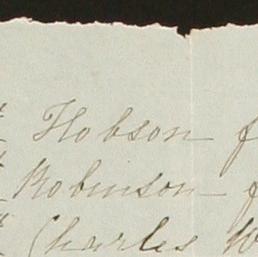 Hobson f
Robinson f
Charles W